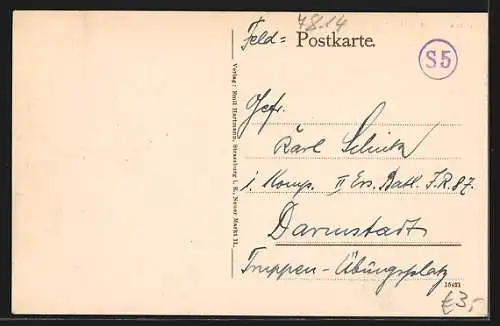 7.8.14
Feld= Postkarte.
S5
Verlag: Emil Hartmann, Strassburg i. E., Neuer Markt 11.
Gefr.
Karl
1. Komp. II Ers. Batl. I.R. 87.
Darmstadt
Truppen-Übungsplatz
16421
€3,-